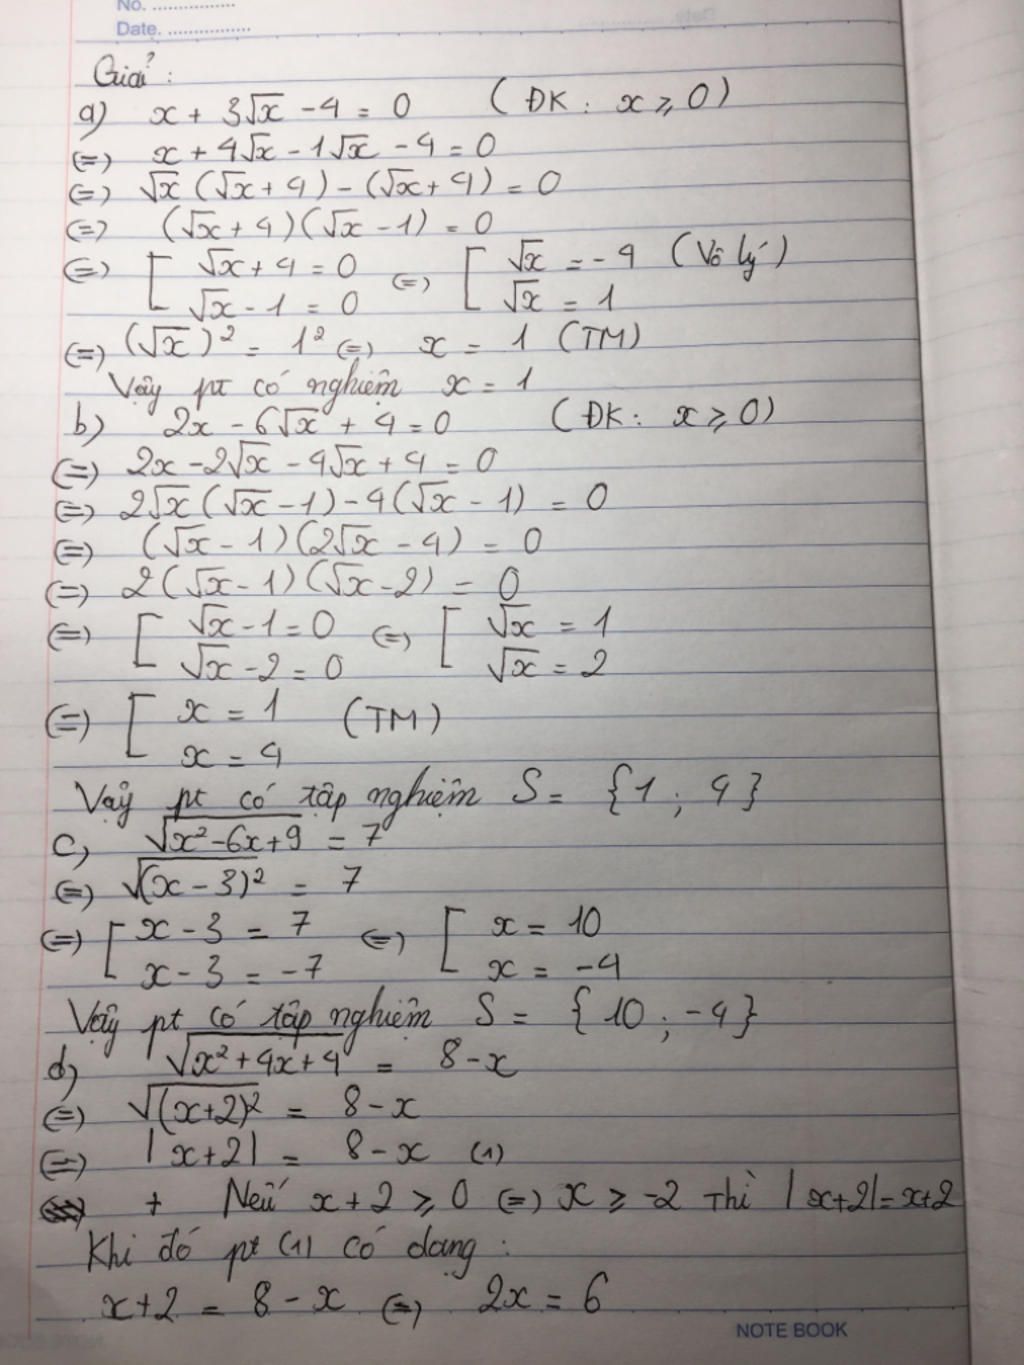 No. ................
Date. ................
Giải :
a) x + 3√x - 4 = 0 ( ĐK : x ⩾ 0 )
(=) x + 4√x - 1√x - 4 = 0
(=) √x (√x + 4) - (√x + 4) = 0
(=) (√x + 4)(√x - 1) = 0
(=) [ √x + 4 = 0 (=) [ √x = -4 (Vô lý)
√x - 1 = 0 √x = 1
(=) (√x)² = 1² (=) x = 1 (TM)
Vậy pt có nghiệm x = 1
b) 2x - 6√x + 4 = 0 ( ĐK : x ⩾ 0 )
(=) 2x - 2√x - 4√x + 4 = 0
(=) 2√x (√x - 1) - 4(√x - 1) = 0
(=) (√x - 1)(2√x - 4) = 0
(=) 2(√x - 1)(√x - 2) = 0
(=) [ √x - 1 = 0 (=) [ √x = 1
√x - 2 = 0 √x = 2
(=) [ x = 1 (TM)
x = 4
Vậy pt có tập nghiệm S = {1 ; 4}
c) √(x² - 6x + 9) = 7
(=) √((x - 3)²) = 7
(=) [ x - 3 = 7 (=) [ x = 10
x - 3 = -7 x = -4
Vậy pt có tập nghiệm S = {10 ; -4}
d) √(x² + 4x + 4) = 8 - x
(=) √((x+2)²) = 8 - x
(=) |x+2| = 8 - x (1)
+ Nếu x + 2 ⩾ 0 (=) x ⩾ -2 thì |x+2| = x+2
Khi đó pt (1) có dạng :
x + 2 = 8 - x (=) 2x = 6
NOTE BOOK